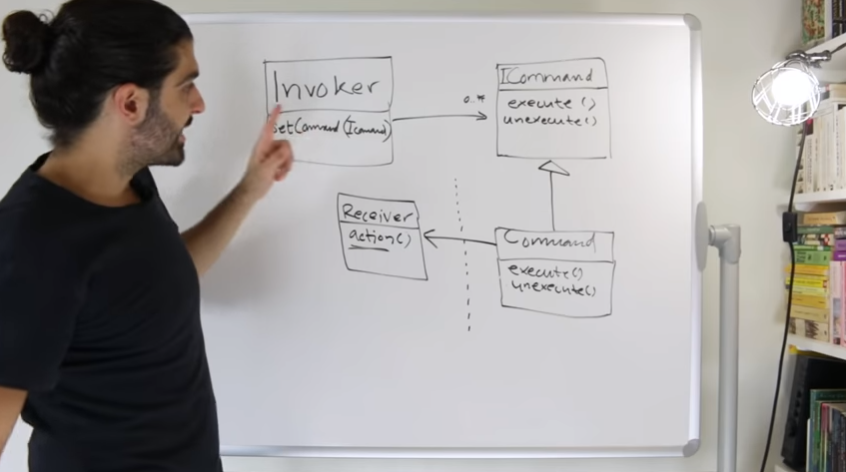 Invoker
setCommand(ICommand)
0..*
ICommand
execute()
unexecute()
Receiver
action()
Command
execute()
unexecute()